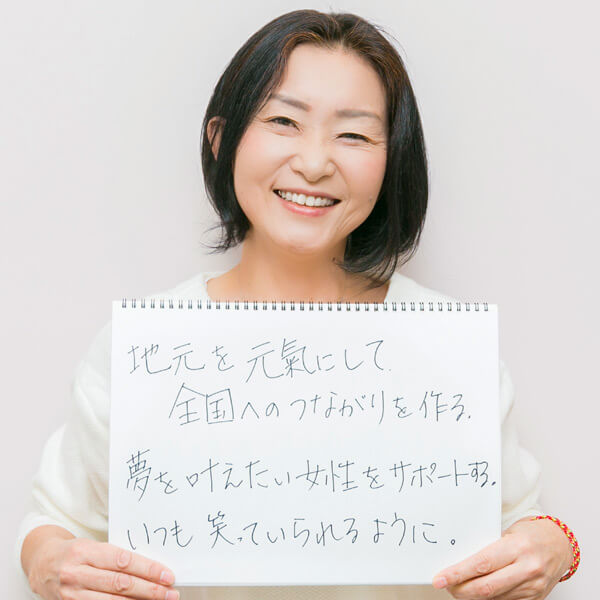 地元を元氣にして
全国へのつながりを作る.
夢を叶えたい女性をサポートする.
いつも笑っていられるように。